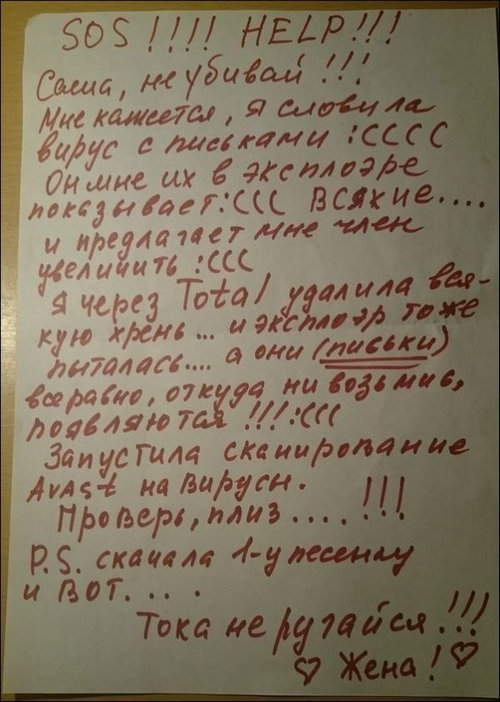 SOS !!!! HELP!!!
Саша, не убивай !!!
Мне кажется, я словила
вирус с письками :СССС
Он мне их в эксплоэре
показывает:((( ВСЯКИЕ....
и предлагает мне член
увеличить :(((
Я через Total удалила вся-
кую хрень... и эксплоэр тоже
пыталась.... а они (письки)
всёравно, откуда ни возьмись,
появляются !!!:(((
Запустила сканирование
Avast на вирусы.
Проверь, плиз .... !!!
P.S. скачала 1-у песенку
и ВОТ. . . .
Тока не ругайся !!!
♡ Жена! ♡